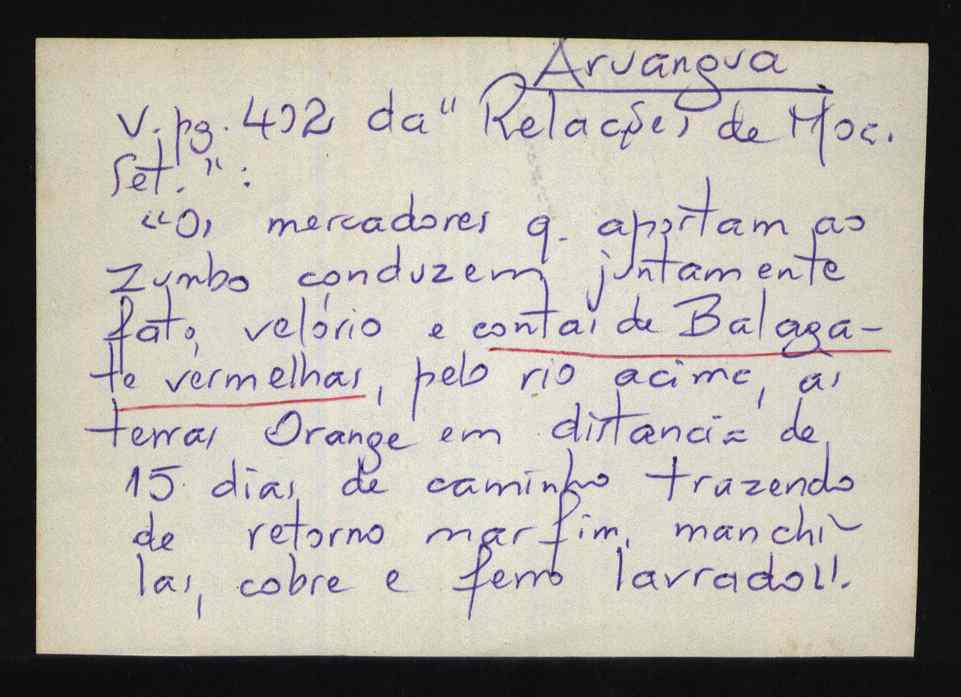 Aruângua
V. pg. 402 da "Relações de Moc.
Set.":
"Os mercadores q. aportam ao
Zumbo conduzem juntamente
fato, velório e contas de Balaga-
te vermelhas, pelo rio acima, as
terras Orange em distancia de
15 dias de caminho trazendo
de retorno marfim, manchi-
las, cobre e ferro lavrados".